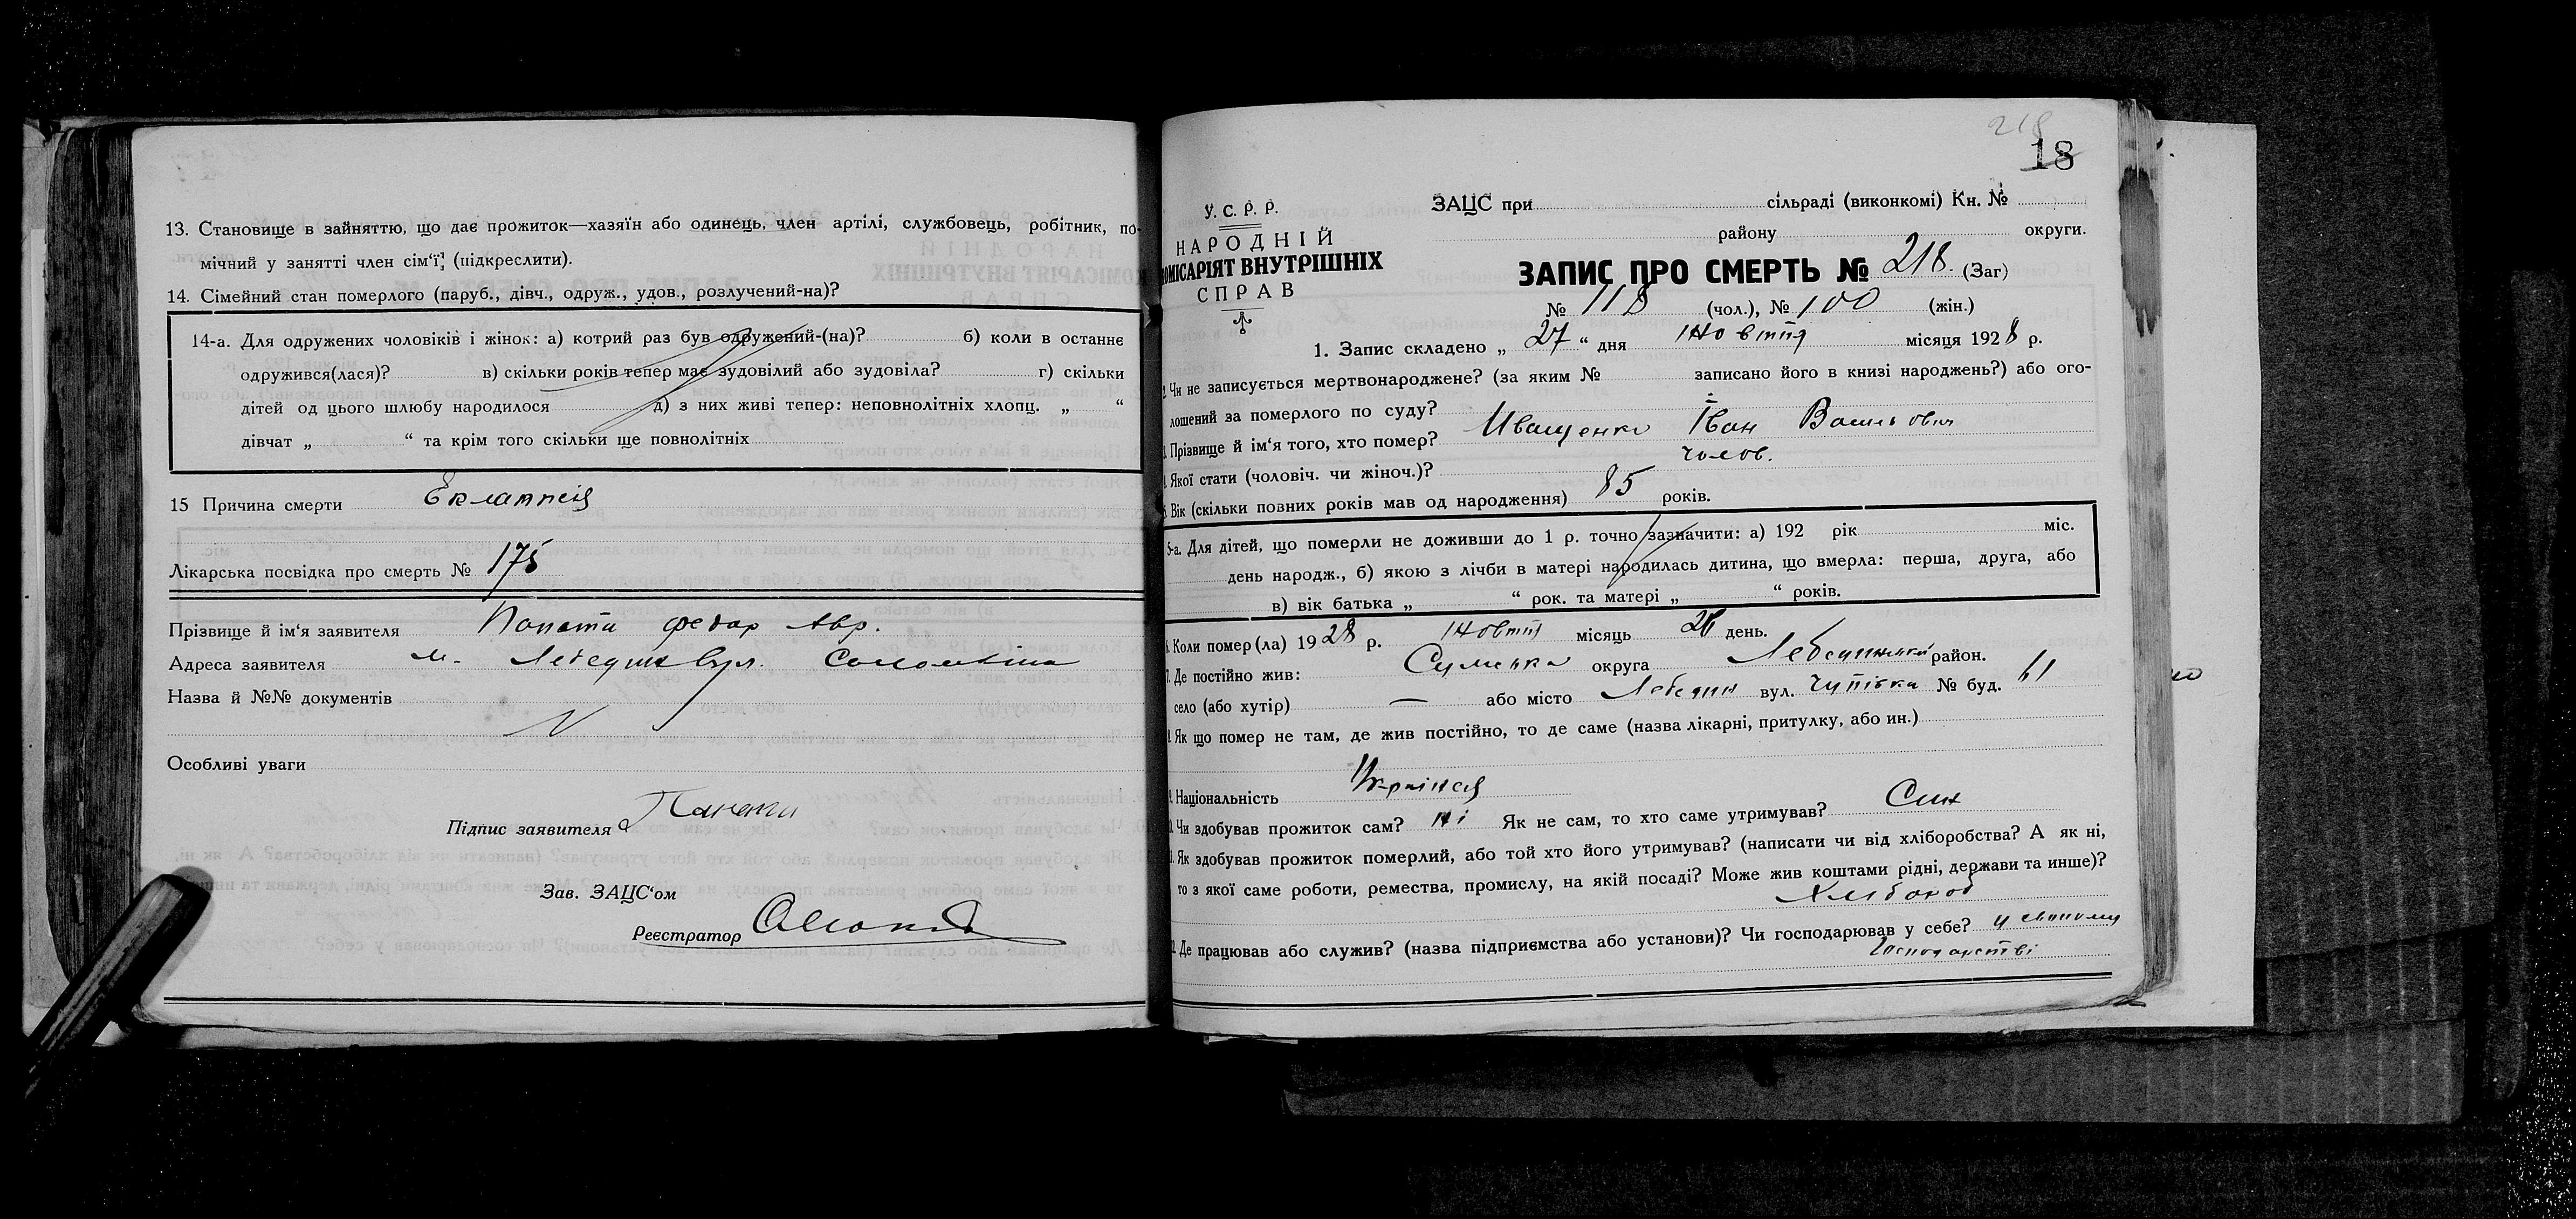 13. Становище в зайняттю, що дає прожиток—хазяїн або одинець, член артілі, службовець, робітник, по-
мічний у занятті член сім‘ї, (підкреслити).
14. Сімейний стан померлого (паруб., дівч., одруж., удов., розлучений-на)?
14-а. Для одружених чоловіків і жінок: а) котрий раз був одружений-(на)? б) коли в останнє
одружився(лася)? в) скільки років тепер має зудовілий або зудовіла? г) скільки
дітей од цього шлюбу народилося д) з них живі тепер: неповнолітніх хлопц. „ “
дівчат „ “ та крім того скільки ще повнолітніх
15 Причина смерти Еклампсія
Лікарська посвідка про смерть № 175
Прізвище й ім‘я заявителя федор Авр.
Адреса заявителя м. Лебедин вул.
Назва й №№ документів
Особливі уваги
Підпис заявителя
Зав. ЗАЦС‘ом
Реєстратор
218
18
У. С. Р. Р.
НАРОДНІЙ
КОМІСАРІЯТ ВНУТРІШНІХ
СПРАВ
ЗАЦС при сільраді (виконкомі) Кн. №
району округи.
ЗАПИС ПРО СМЕРТЬ № 218. (Заг)
№ 118 (чол.), № 100 (жін.)
1. Запис складено „ 27 “ дня жовтня місяця 1928 р.
2. Чи не записується мертвонароджене? (за яким № записано його в книзі народжень?) або ого-
лошений за померлого по суду?
3. Прізвище й ім‘я того, хто помер? Иващенко Іван Васильович
4. Якої стати (чоловіч. чи жіноч.)? чолов.
5. Вік (скільки повних років мав од народження) 85 років.
5-а. Для дітей, що померли не доживши до 1 р. точно зазначити: а) 192 рік міс.
день народж., б) якою з лічби в матері народилась дитина, що вмерла: перша, друга, або
в) вік батька „ “ рок. та матері „ “ років.
6. Коли помер(ла) 1928 р. жовтня місяць 26 день.
7. Де постійно жив: Сумська округа Лебединський район.
село (або хутір) — або місто Лебедин вул. № буд. 61
8. Як що помер не там, де жив постійно, то де саме (назва лікарні, притулку, або ин.)
9. Національність Українець
10. Чи здобував прожиток сам? ні Як не сам, то хто саме утримував? Син
11. Як здобував прожиток померлий, або той хто його утримував? (написати чи від хліборобства? А як ні,
то з якої саме роботи, ремества, промислу, на якій посаді? Може жив коштами рідні, держави та инше)?
Хлібороб
12. Де працював або служив? (назва підприємства або установи)? Чи господарював у себе? у своему
господарстві